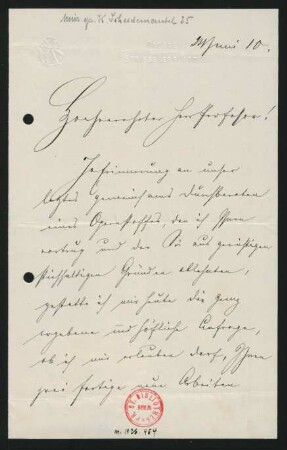 24 Juni 10.
Hochverehrter Herr Professor!
In Erinnerung an unser
letztes gemeinsames Durchberaten
eines Opernstoffes, den ich Ihnen
vortrug und den Sie aus
stichhaltigen Gründen ablehnten,
gestatte ich mir heute die ganz
ergebene und höfliche Anfrage,
ob ich mir erlauben darf, Ihnen
zwei fertige neue Arbeiten